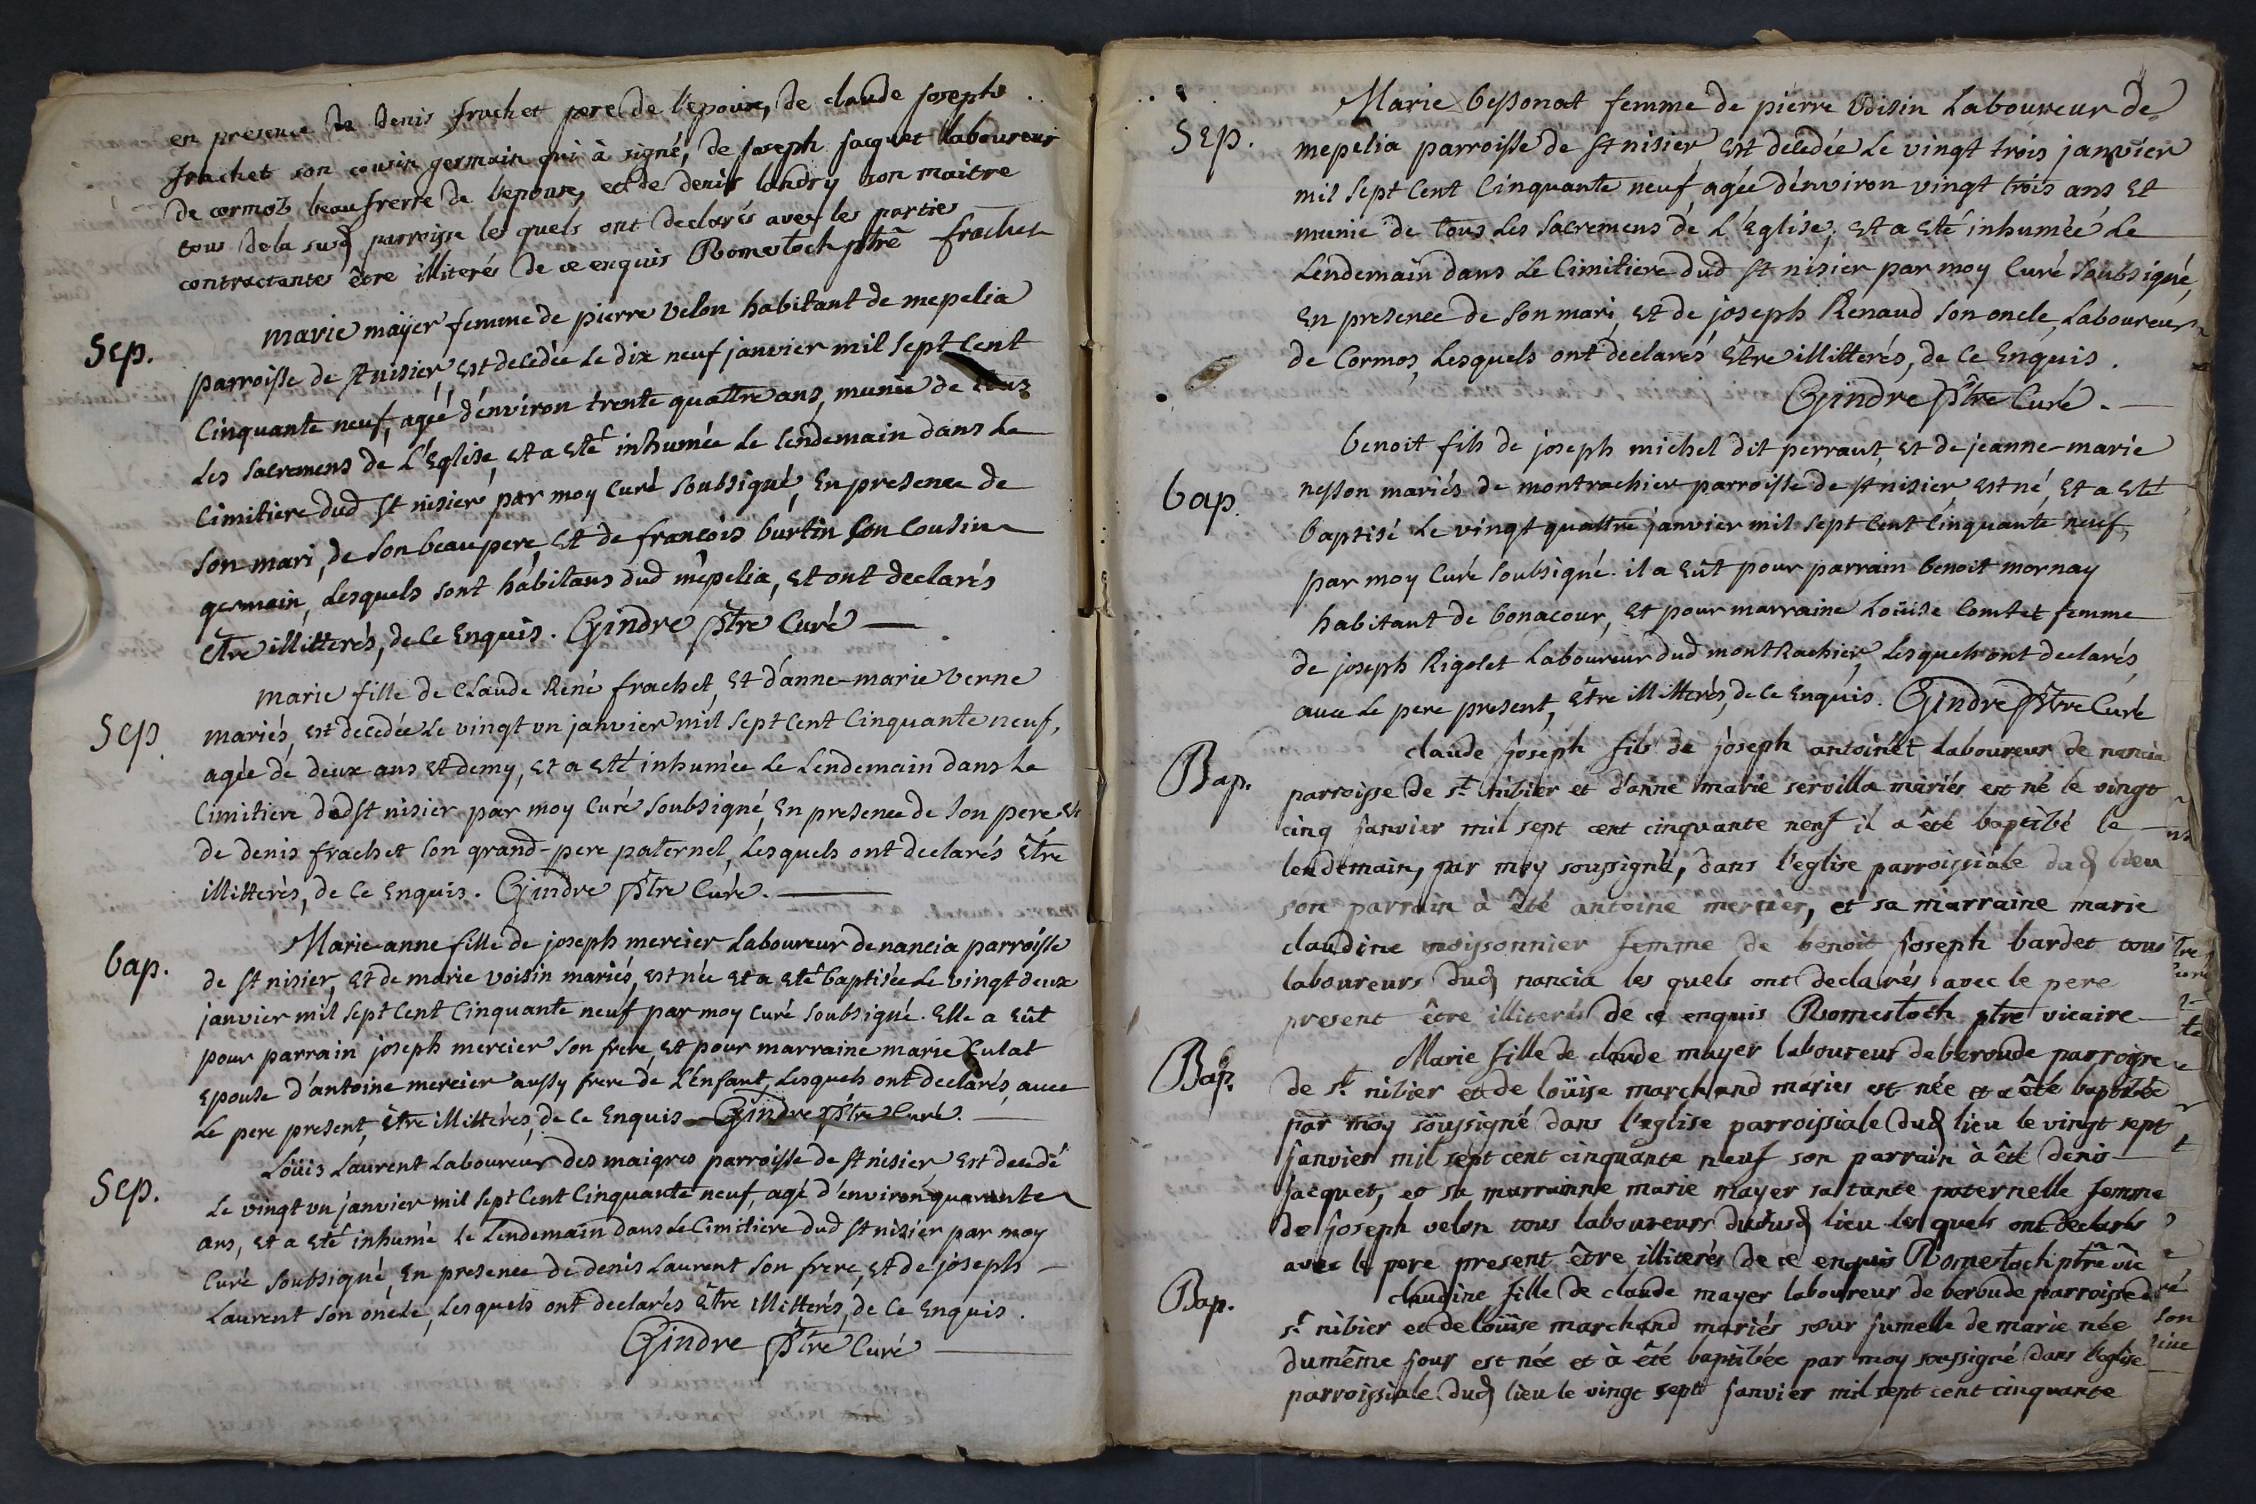 en presence de denis frachet pere de l'epoux, de claude joseph
frachet son cousin germain qui à signé, de joseph jacquet laboureur
de cormoz beaufrerre de l'epouse, et de denis landry son maitre
tous de la susd parroisse les quels ont declarés avec les parties
contractantes être illiterés de ce enquis Romestoch ptrê frachet
Sep.
marie mayer femme de pierre velon habitant de mepelia
parroisse de st nisier, est decedée le dix neuf janvier mil sept cent
Cinquante neuf, agée d'environ trente quattre ans, munie de tous
les sacremens de L'Eglise, et a Eté inhumée Le lendemain dans Le
Cimitiere dud st nisier par moy Curé soubsigné, En presence de
son mari, de son beaupere, et de francois burtin son Cousin
germain, Lesquels sont habitans dud mepelia, et ont declarés
etre illitterés, de Ce Enquis. Gindre Ptre Curé
Sep
marie fille de Claude René frachet, et d'anne-marie verne
mariés, est decedée Le vingt un janvier mil sept Cent Cinquante neuf,
agée de deux ans et demy, et a eté inhumée Le Lendemain dans Le
Cimitiere dudst nisier par moy Curé soubsigné, En presence de son pere Et
de denis frachet son grand-pere paternel, Lesquels ont declarés Etre
illitterés, de Ce Enquis. Gindre Ptre Curé.
bap.
Marie-anne fille de joseph mercier Laboureur de nancia parroisse
de st nisier, Et de marie voisin mariés, est née et a eté baptisée Le vingt deux
janvier mil sept Cent Cinquante neuf par moy Curé soubsigné. Elle a Eût
pour parrain joseph mercier son frere, et pour marraine marie Culat
Epouse d'antoine mercier aussy frere de L'Enfant, Lesquels ont declarés, avec
Le pere present, Etre illitterés, de Ce Enquis Gindre Ptre Curé.
Sep.
Loüis Laurent Laboureur des maigres parroisse de st nisier est decedé
Le vingt un janvier mil sept Cent Cinquante neuf, agé d'environ quarante
ans, Et a Eté inhumé le Lendemain dans Le Cimitiere dud st nisier par moy
Curé soubsigné, En presence de denis Laurent son frere, Et de joseph
Laurent son oncle, Lesquels ont declarés Etre illitterés, de Ce Enquis.
Gindre Ptre Curé
Sep.
Marie bessonat femme de pierre Voisin Laboureur de
mepelia parroisse de st nisier, est decedée Le vingt trois janvier
mil sept Cent Cinquante neuf, agée d'environ vingt trois ans Et
munie de tous Les sacremens de L'Eglise, et a Eté inhumée Le
Lendemain dans Le Cimitiere dud st nisier par moy Curé soubsigné,
En presence de son mari, et de joseph Renaud son oncle, Laboureur
de Cormos, Lesquels ont declarés Etre illitterés, de Ce Enquis.
Gindre Ptre Curé.
bap.
benoit fils de joseph michel dit perraut, et de jeanne-marie
nesson mariés de montrachier parroisse de st nisier, est né, et a eté
baptisé Le vingt quattre janvier mil sept cent Cinquante neuf,
par moy Curé soubsigné. il a eût pour parrain benoit mornay
habitant de bonacour, et pour marraine Loüise Comtet femme
de joseph Rigolet Laboureur dud montrachier, Lesquels ont declarés,
avec Le pere present, Etre illitterés, de Ce Enquis. Gindre Ptre Curé
Bap.
claude joseph fils de joseph antoinet laboureur de nancia
parroisse de st nibier et d'anne marie servilla mariés est né le vingt
cinq janvier mil sept cent cinquante neuf il a êté baptibé le
lendemain, par moy soussigné, dans l'eglise parroissiale dud lieu
son parrain à êté antoine mercier, et sa marraine marie
claudine moissonnier femme de benoit joseph bardet tous
laboureurs dud nancia les quels ont declarés avec le pere
present être illiterés de ce enquis Romestoch ptre vicaire
Bap.
Marie fille de claude mayer laboureur de beroude parroisse
de st nibier et de loüise marchand mariés est née et a êté baptibée
par moy soussigné dans l'eglise parroissiale dud lieu le vingt sept
janvier mil sept cent cinquante neuf son parrain à êté denis
jacquet, et sa marrainne marie mayer sa tante paternelle femme
de joseph velon tous laboureurs dudusd lieu les quels ont declarés
avec le pere present être illiterés de ce enquis Romestoch ptrê vic
Bap.
claudine fille de claude mayer laboureur de beroude parroisse de
st nibier et de loüise marchand mariés sœur jumelle de marie née
du même jour est née et à êté baptibée par moy soussigné dans l'eglise
parroissiale dud lieu le vingt sept janvier mil sept cent cinquante